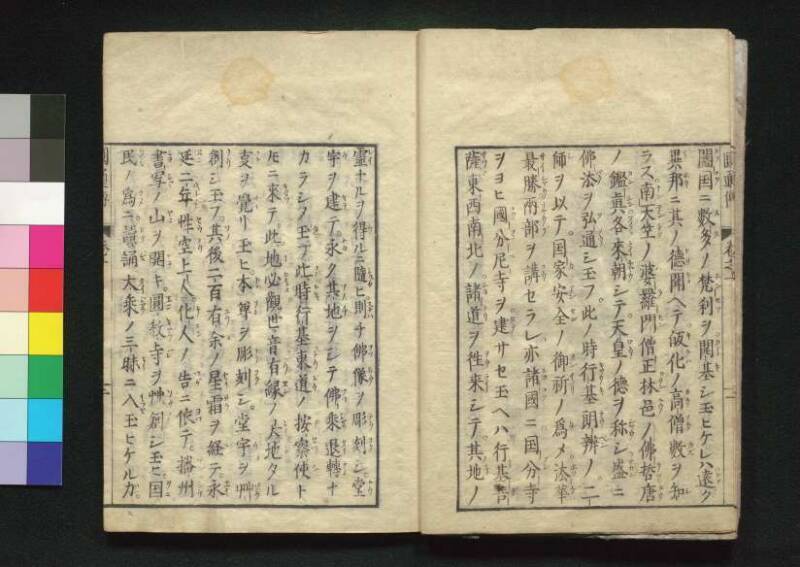 闔国ニ数多ノ梵刹ヲ開基シ玉ヒケレハ遠ク
異邦ニ其ノ徳聞ヘテ皈化ノ高僧数ヲ知
ラス南天竺ノ婆羅門僧正林邑ノ佛哲唐
ノ鑑真各来朝シテ天皇ノ徳ヲ称シ盛ニ
佛法ヲ弘通シ玉フ此ノ時行基朗辨ノ二
師ヲ以テ国家安全ノ御祈ノ為メ法華
最勝両部ヲ講セラレ亦諸國ニ国分寺
ヲヨヒ國分尼寺ヲ建サセ玉ヘハ行基菩
薩東西南北ノ諸道ヲ往来シテ其地ノ
靈ナルヲ得ルニ随ヒ則チ佛像ヲ彫刻シ堂
宇ヲ建テ永ク其地ヲシテ佛乗退轉ナ
カラシメ玉フ此時行基東道ノ按察使ト
シテ此地必觀世音有縁ノ大地タル
支ヲ覚リ玉ヒ本尊ヲ彫刻シ堂宇ヲ艸
創シ玉フ其後二百有余ノ星霜ヲ経テ永
延二年性空上人化人ノ告ニ依テ播州
書写ノ山ヲ開キ圓教寺ヲ艸創シ玉ヒ国
民ノ為ニ讀誦大乗ノ三昧ニ入玉ヒケルカ